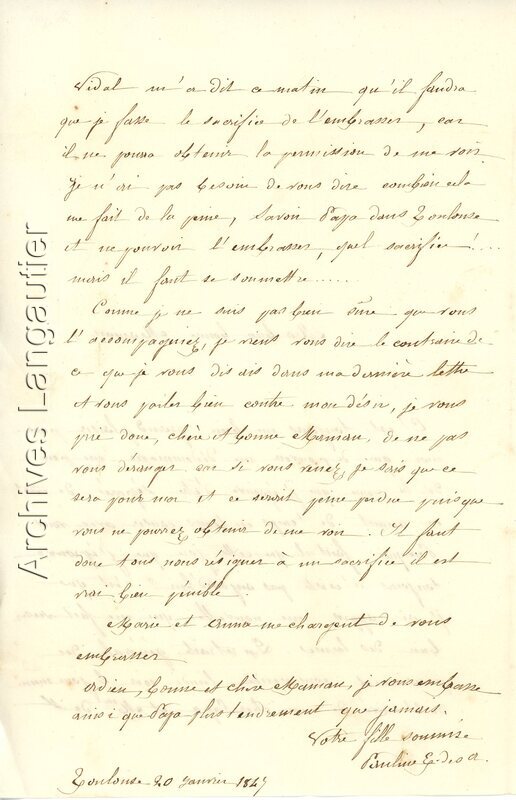 Vidal m'a dit ce matin qu'il faudra
que je fasse le sacrifice de l'embrasser, car
il ne poura obtenir la permission de me voir
je n'ai pas besoin de vous dire combien cela
me fait de la peine, savoir Papa dans Toulouse
et ne pouvoir l'embrasser, quel sacrifice !....
mais il faut se soumettre......
Comme je ne suis pas bien sûre que vous
l'accompagniez, je viens vous dire le contraire de
ce que je vous disais dans ma dernière lettre
et vous parler bien contre mon désir, je vous
prie donc, chère et bonne Maman, de ne pas
vous déranger car si vous venez, je sais que ce
sera pour moi et ce serait peine perdue puisque
vous ne pourrez obtenir de me voir. Il faut
donc tous nous résigner à un sacrifice il est
vrai bien pénible.
Marie et Anna me chargent de vous
embrasser
adieu, bonne et chère Maman, je vous embrasse
ainsi que Papa plus tendrement que jamais.
Votre fille soumise
Pauline
Toulouse 20 janvier 1847
Archives Langautier